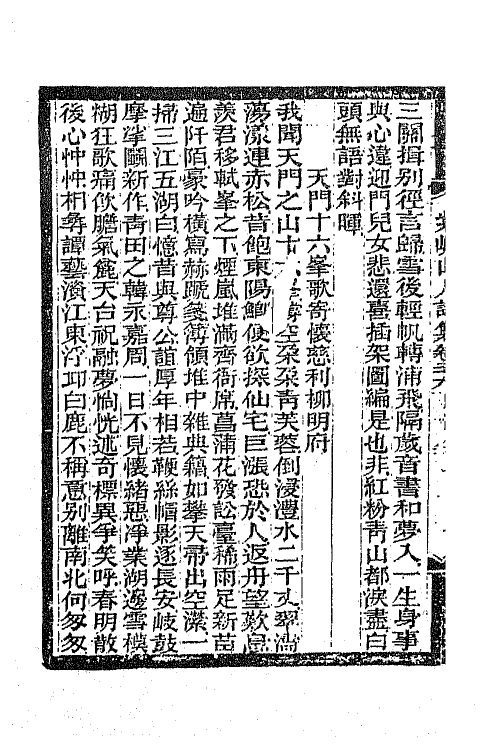 三關揖別徑言歸雪後輕帆轉浦飛隔歲音書和夢入一生身事
與心違迎門兒女悲還臺插架圖編是也非紅粉靑山都淚盡白
頭無語對斜暉
天門十六峯歌寄懷慈利柳明府
我聞天門之山十六空朶朶靑芙蓉倒浸澧水二千丈翠
蕩漾連赤松昔飽東陽鮑俊欲探仙宅巨漲恐於人返舟望歎息
羨君移軾峯之下煙嵐堆滿齊衙席菖蒲花發訟臺稀雨足新苗
遍阡陌豪吟橫寫赫蹏箋簿領堆中雜典籍如攀天帚出空濛一
掃三江五湖白憶昔與尊公誼厚年相若鞭絲帽影逐長安岐鼓
摩挲鬭新作靑田之韓永嘉周一日不見懷緒惡凈業湖邊雪模
糊狂歌痛飮膽氣麤天台祝融夢恍述奇標異爭笑呼春明散
後心忡忡相尋譚藝濱江東浮邛白鹿不稱意別離南北何匆匆